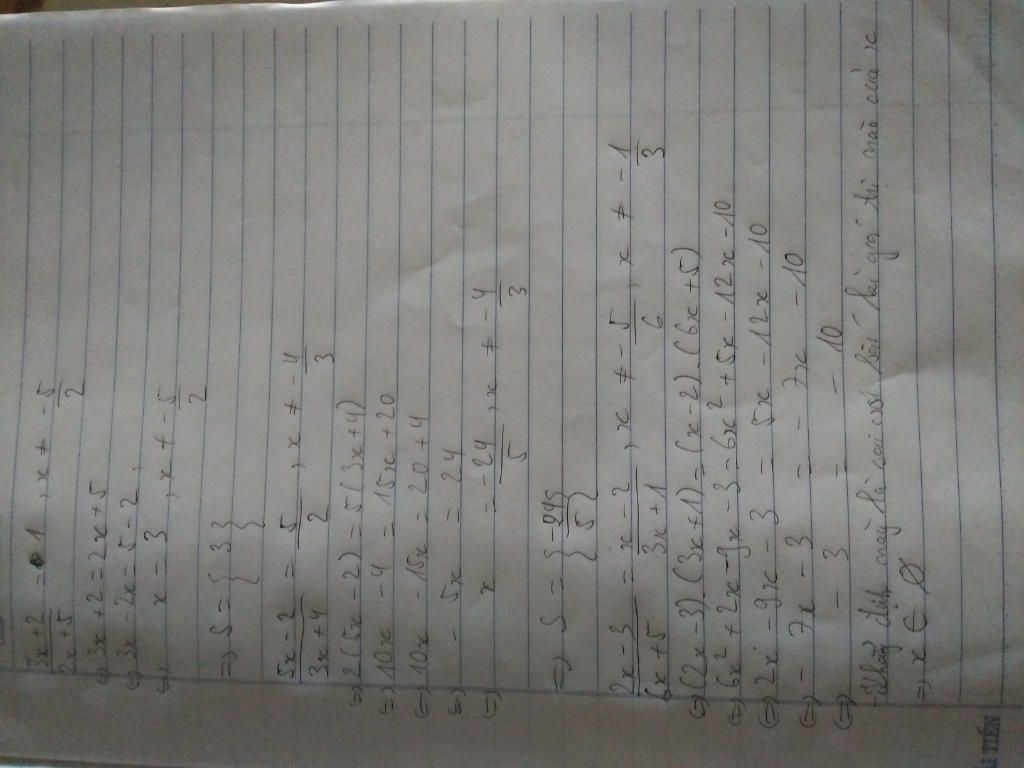 3x+2/2x+5 = 1, x ≠ -5/2
⇔ 3x + 2 = 2x + 5
⇔ 3x - 2x = 5 - 2
⇔ x = 3, x ≠ -5/2
⇒ S = { 3 }
5x-2/3x+4 = 5/2, x ≠ -4/3
⇔ 2(5x - 2) = 5(3x + 4)
⇔ 10x - 4 = 15x + 20
⇔ 10x - 15x = 20 + 4
⇔ - 5x = 24
⇔ x = -24/5, x ≠ -4/3
⇒ S = { -24/5 }
2x-3/6x+5 = x-2/3x+1, x ≠ -5/6, x ≠ -1/3
⇔ (2x-3).(3x+1) = (x-2).(6x+5)
⇔ 6x² + 2x - 9x - 3 = 6x² + 5x - 12x - 10
⇔ 2x - 9x - 3 = 5x - 12x - 10
⇔ - 7x - 3 = - 7x - 10
⇔ - 3 = - 10
là sai với bất kì giá trị nào của x
⇒ x ∈ ∅
TIẾN